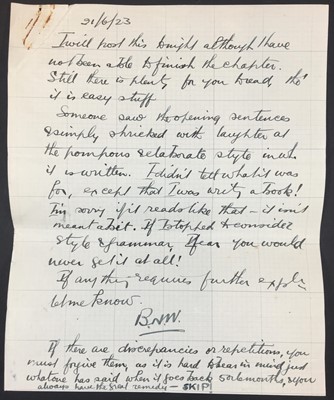 21/6/23
I will post this tonight although I have
not been able to finish the chapter.
Still there is plenty for you to read, tho'
it is easy stuff
Someone saw the opening sentences
& simply shrieked with laughter at
the pompous & elaborate style in wh
it is written. I didn't tell what it was
for, except that I was writg a book!
I'm sorry if it reads like that – it isn't
meant a bit. If I stopped to consider
style & grammar, I fear you would
never get it at all!
If anythg requires further expln
let me know.
If there are discrepancies or repetitions, you
must forgive them, as it is hard to bear in mind just
what one has said when it goes back 5 or 6 months, & you
always have the great remedy – SKIP!